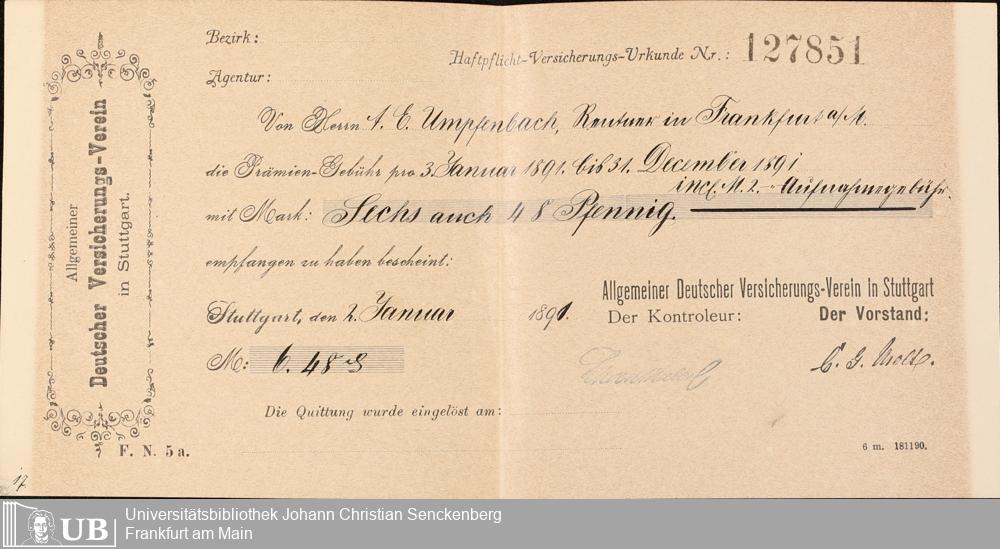 Allgemeiner
Deutscher Versicherungs-Verein
in Stuttgart.
F. N. 5 a.
Bezirk:
Haftpflicht-Versicherungs-Urkunde Nr.: 127851
Agentur:
Von Herrn A. E. Umpfenbach, Rentner in Frankfurt a/M.
die Prämien-Gebühr pro 3. Januar 1891. bis 31. December 1891
incl. M. 2.- Aufnahmegebühr.
mit Mark: Sechs auch 48 Pfennig.
empfangen zu haben bescheint:
Stuttgart, den 2. Januar 1891.
Allgemeiner Deutscher Versicherungs-Verein in Stuttgart
Der Kontroleur: Der Vorstand:
M: 6. 48 ₰
C. G. Molt.
Die Quittung wurde eingelöst am:
6 m. 181190.
17
UB
Universitätsbibliothek Johann Christian Senckenberg
Frankfurt am Main